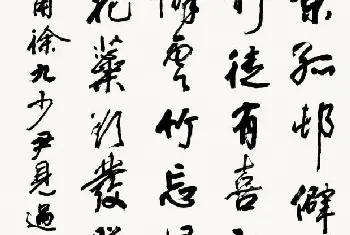 景孤邨僻
徒有喜
憐雲竹忘
花蘂欲發
甫徐九少尹見過